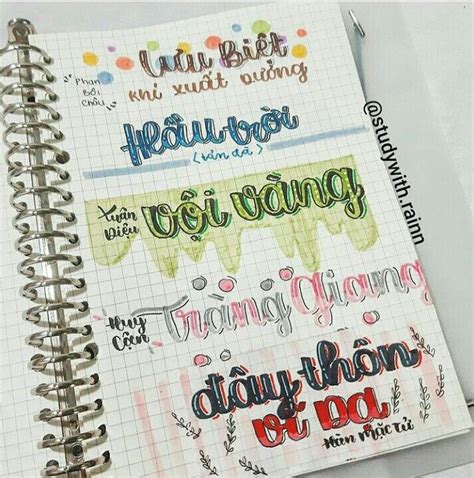 Lưu Biệt
khi xuất dương
Phan
Bội
Châu
Hầu trời
(tản đà)
Xuân
Diệu
vội vàng
Huy
Cận
Tràng Giang
đây thôn
vĩ Dạ
Hàn Mặc Tử
@studywith.rainn